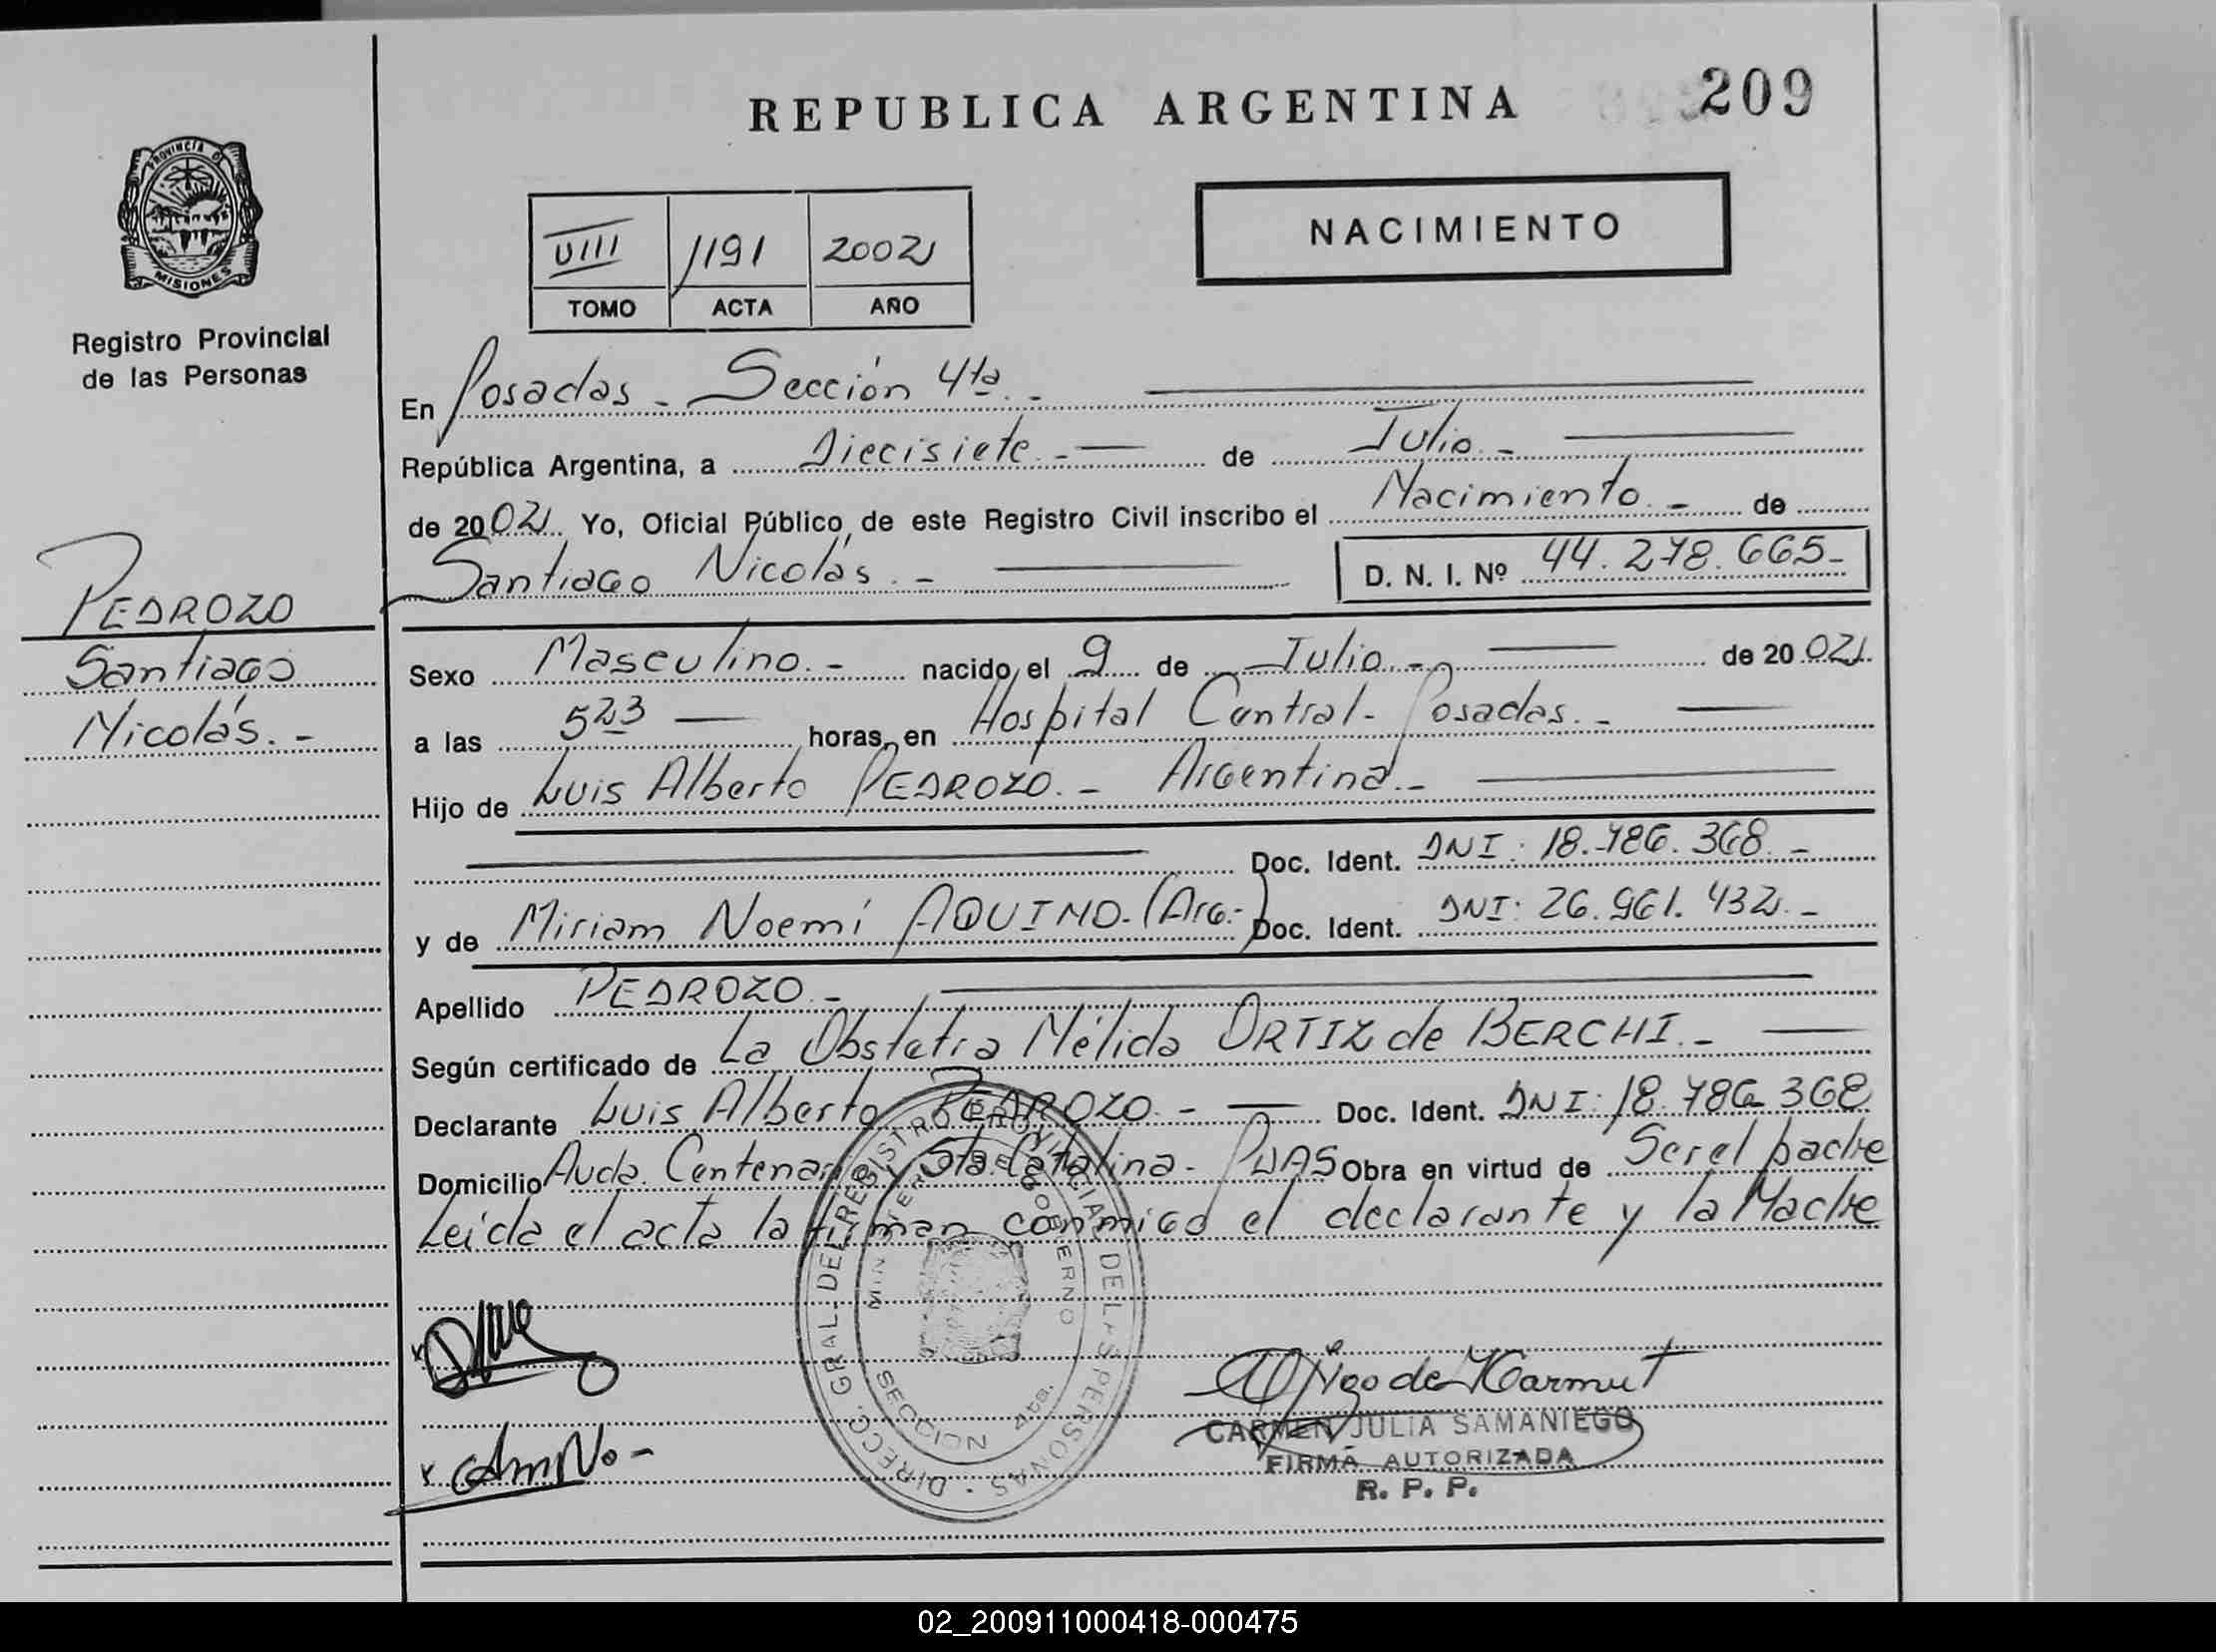 REPUBLICA ARGENTINA
209
PROVINCIA DE
MISIONES
Registro Provincial
de las Personas
NACIMIENTO
VIII 1191 2002
TOMO ACTA AÑO
En Posadas - Sección 4ta. -
República Argentina, a Diecisiete. - de Julio. -
de 2002. Yo, Oficial Público, de este Registro Civil inscribo el Nacimiento. - de
Santiago Nicolás. -
D. N. I. Nº 44.278.665-
PEDROZO
Santiago
Nicolás. -
Sexo Masculino. - nacido el 9 de Julio. - de 2002.
a las 523 horas, en Hospital Central - Posadas. -
Hijo de Luis Alberto PEDROZO. - Argentina. -
Doc. Ident. DNI: 18.786.368. -
y de Miriam Noemí AQUINO. (Arg.-) Doc. Ident. DNI: 26.961.432. -
Apellido PEDROZO. -
Según certificado de La Obstetra Nélida ORTIZ de BERCHI. -
Declarante Luis Alberto PEDROZO. - Doc. Ident. DNI: 18.786.368
Domicilio Avda. Centenario y Sta. Catalina - PDAS Obra en virtud de Ser el padre
Leída el acta la firman conmigo el declarante y la Madre
DIRECC. GRAL. DEL REGISTRO PROVINCIAL DE LAS PERSONAS
MINISTERIO DE GOBIERNO
SECCION 4ta.
CARMEN JULIA SAMANIEGO
FIRMA AUTORIZADA
R. P. P.
02_200911000418-000475